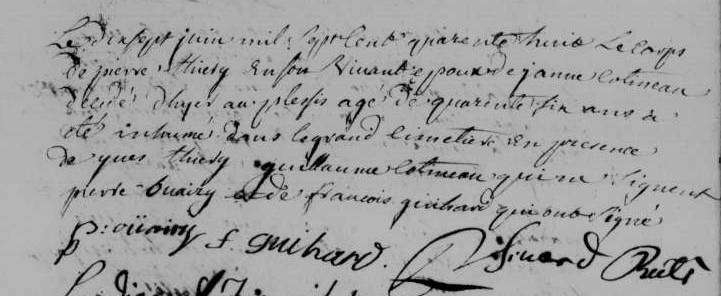 Le dixsept juin mil sept Cent quarente huit Le corps
de pierre thiery En son Vivant epoux de janne Cotineau
décédé d'hyer au plessis agé de quarente six ans a
eté inhumé dans le grand cimetiere En presence
de yves thiery guillaume Cotineau qui ne signent
pierre ouairy et de francois guihard qui ont signé
p: oüairy f. guihard. Rect